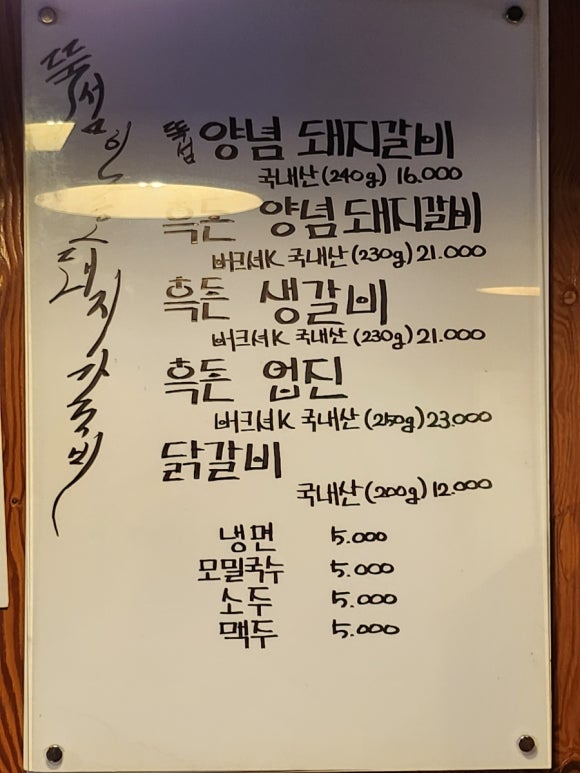 뚝섬 돼지갈비
뚝섬 양념 돼지갈비
국내산 (240g) 16.000
흑돈 양념 돼지갈비
버크셔K 국내산 (230g) 21.000
흑돈 생갈비
버크셔K 국내산 (230g) 21.000
흑돈 업진
버크셔K 국내산 (250g) 23.000
닭갈비
국내산 (200g) 12.000
냉면 5.000
모밀국수 5.000
소주 5.000
맥주 5.000